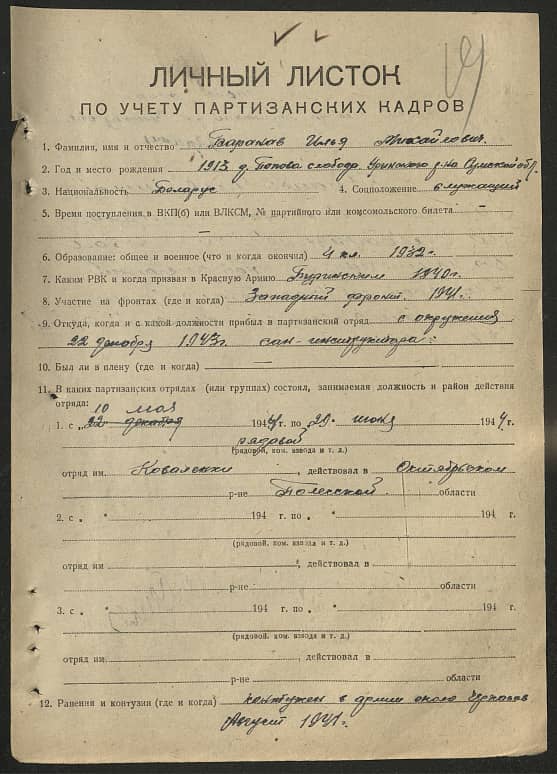 ЛИЧНЫЙ ЛИСТОК
ПО УЧЕТУ ПАРТИЗАНСКИХ КАДРОВ
1. Фамилия, имя и отчество Баранав Илья Михайлович.
2. Год и место рождения 1913 д. Попова слобода р-на Сумской обл.
3. Национальность Беларус 4. Соцположение служащий
5. Время поступления в ВКП(б) или ВЛКСМ, № партийного или комсомольского билета —
—
6. Образование: общее и военное (что и когда окончил) 4 кл. 1932г.
7. Каким РВК и когда призван в Красную Армию 1940г.
8. Участие на фронтах (где и когда) Западный фронт. 1941.
9. Откуда, когда и с какой должности прибыл в партизанский отряд с окружения
22 декабря 1943г. сан-инструктора.
10. Был ли в плену (где и когда) —
11. В каких партизанских отрядах (или группах) состоял, занимаемая должность и район действия
отряда: 10 мая
1. с „22 декабря 1944г. по „29" июня 1944г.
рядовой
(рядовой, ком. взвода и т. д.)
отряд им. Коваленки, действовал в Октябрьском
р-не Полесской области
2. с „ " 194 г. по „ " 194 г.
(рядовой. ком. взвода и т. д.)
отряд им. , действовал в
р-не области
3. с „ " 194 г. по „ " 194 г.
(рядовой. ком. взвода и т. д.)
отряд им. , действовал в
р-не области
12. Ранения и контузии (где и когда) контужен в армии около
Август 1941г.